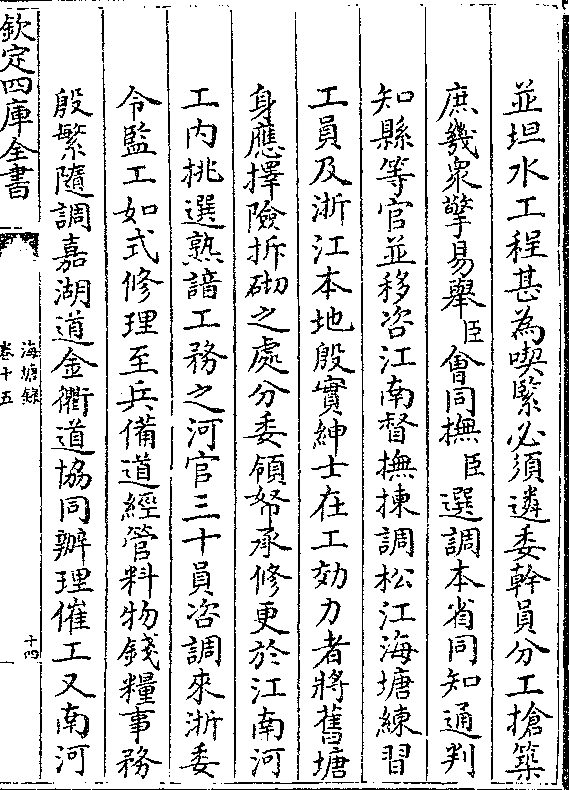 並坦水工程甚為喫緊必須遴委幹員分工搶築
庶幾衆擎易舉臣會同撫臣選調本省同知通判
知縣等官並移咨江南督撫揀調松江海塘練習
工員及浙江本地殷實紳士在工効力者將舊塘
身應擇險拆砌之處分委領帑承修更於江南河
工内挑選熟諳工務之河官三十員咨調來浙委
令監工如式修理至兵備道經管料物錢糧事務
殷繁隨調嘉湖道金衢道協同辦理催工又南河
欽定四庫全書
海塘錄
卷十五
十四